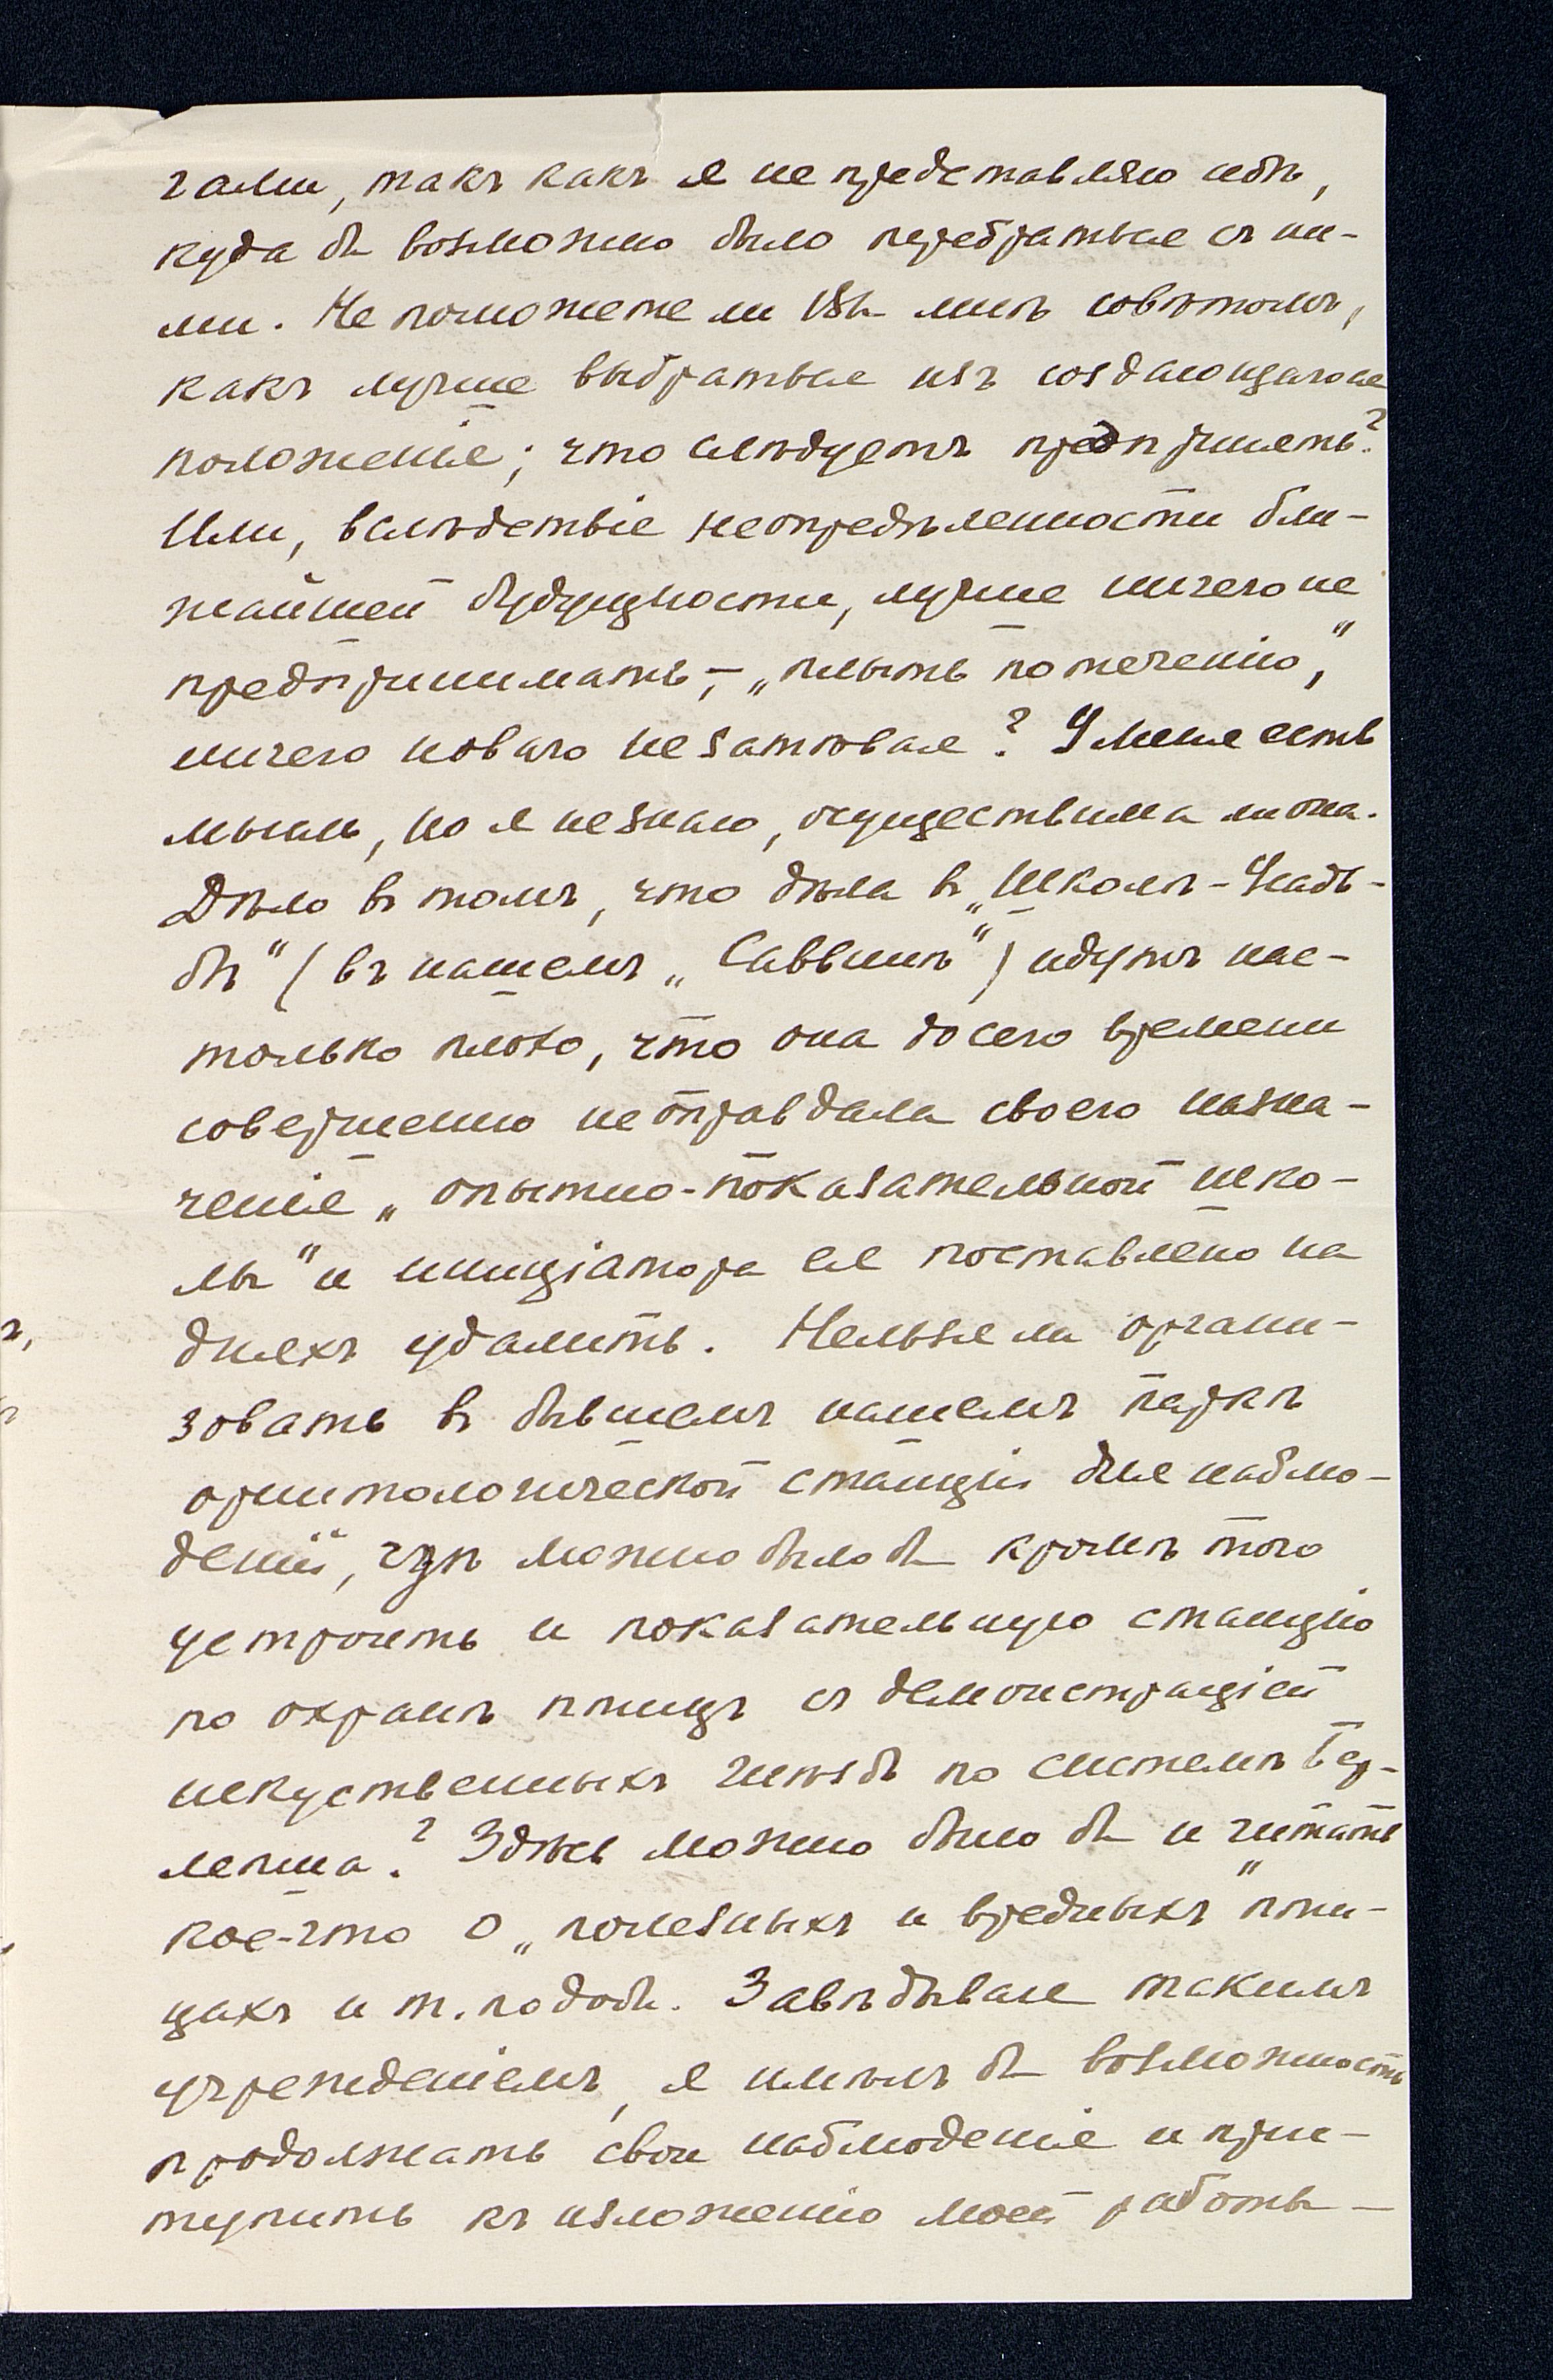 гами, такъ какъ я не представляю себѣ,
куда бы возможно было перебраться съ ни-
ми. Не поможете ли Вы мнѣ совѣтомъ,
какъ лучше выбраться изъ создающагося
положенія; что слѣдуетъ предпринять?
Или, вслѣдствіе неопредѣленности бли-
жайшей будущности, лучше ничего не
предпринимать, – „плыть по теченію“,
ничего новаго не затѣвая? У меня есть
мысль, но я не знаю, осуществима ли она.
Дѣло въ томъ, что дѣла въ „Школѣ-Усадь-
бѣ“ (въ нашемъ „Саввинѣ“) идутъ нас-
только плохо, что она до сего времени
совершенно не оправдала своего назна-
ченія „опытно-показательной шко-
лы“ и иниціатора ея поставлено на
дняхъ удалить. Нельзя ли органи-
зовать въ бывшемъ нашемъ паркѣ
орнитологической станціи для наблю-
деній, гдѣ можно было бы кромѣ того
устроить и показательную станцію
по охранѣ птицъ съ демонстраціей
искусственныхъ гнѣздъ по системѣ Бер-
лепша? Здѣсь можно было бы и читать
кое-что о „полезныхъ и вредныхъ“ пти-
цахъ и т. подоб. Завѣдывая такимъ
учрежденіемъ, я имѣлъ бы возможность
продолжать свои наблюденія и прис-
тупить къ изложенію моей работы –